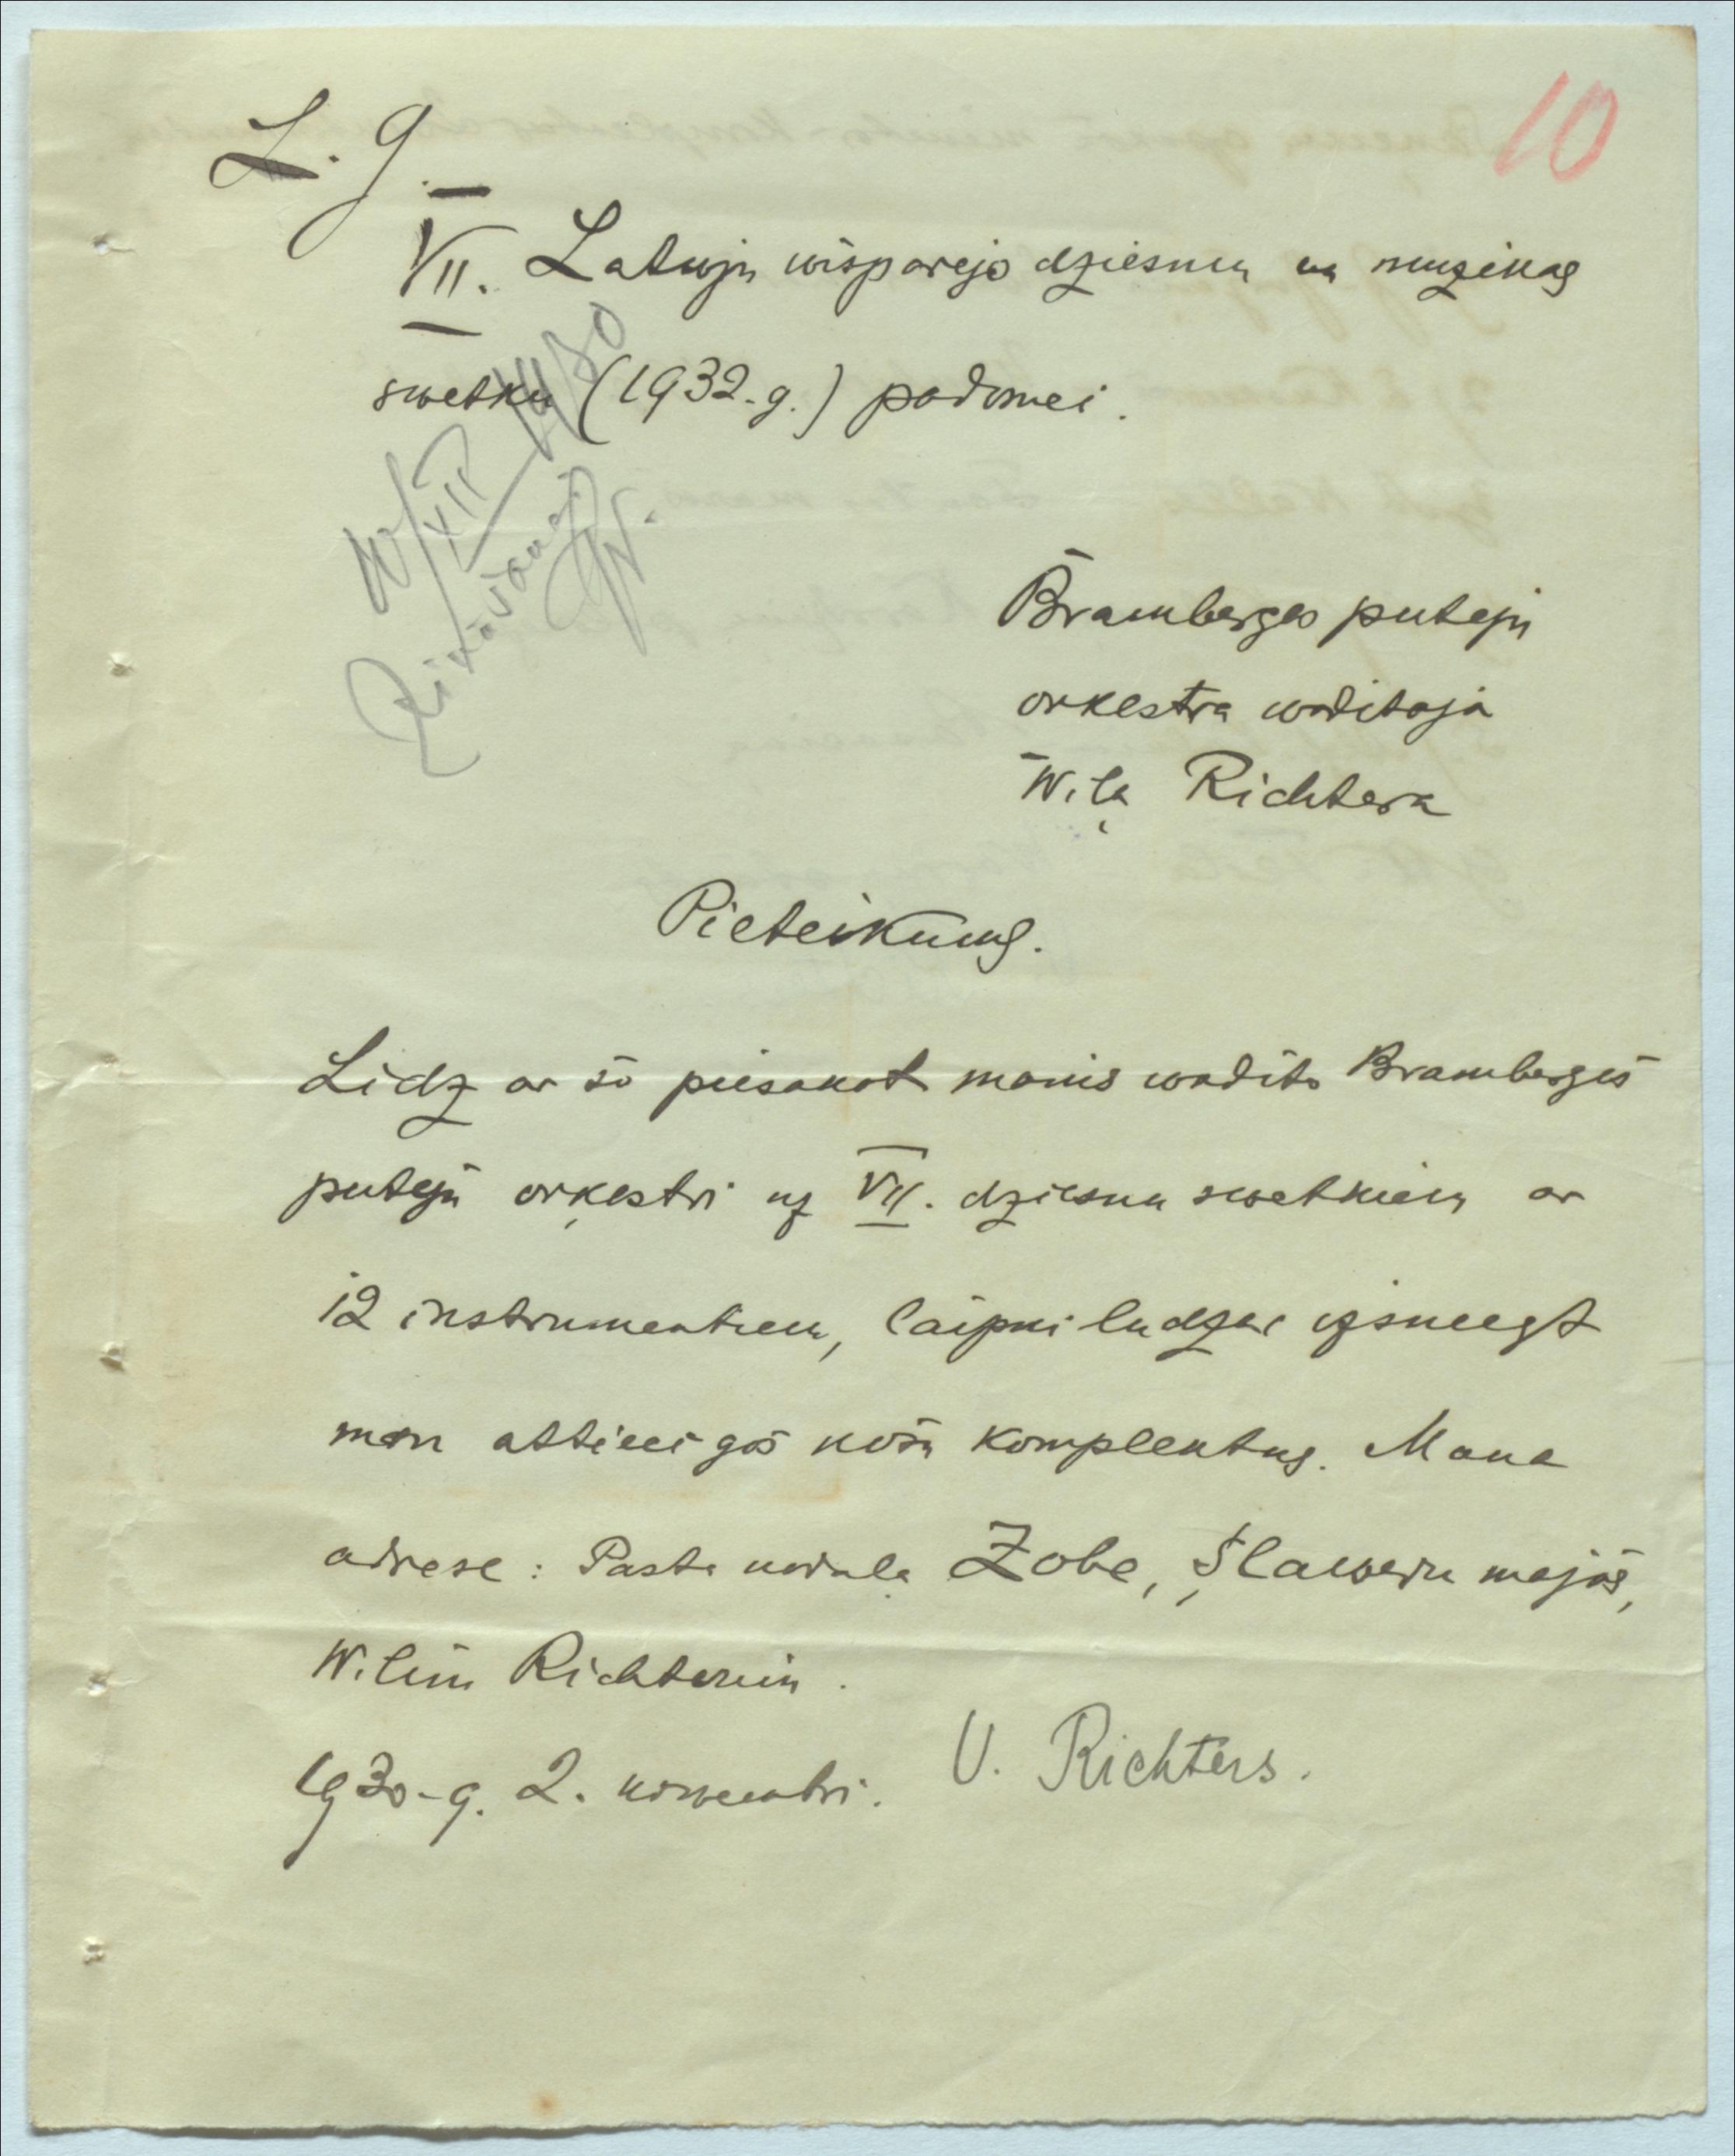 10
L. g.
VII. Latwju wisparejo dziesmu un muzikas
swetku (1932.g.) padomei.
10/XII 1930
Bramberges puteju
orkestra waditaja
Wiļa Richtera
Pieteikums.
Lidz ar šo piesakot manis wadito Brambergēs
puteju orķestri uz VII. dziesmu swetkiem ar
12 instrumentiem, laipni ludzu izsneegt
man attiecigos nošu komplektus. Mana
adrese: Pasta nodaļa Zobe, Šlaweru majās,
Wilim Richterim.
1930-g. 2. nowembri. V. Richters.